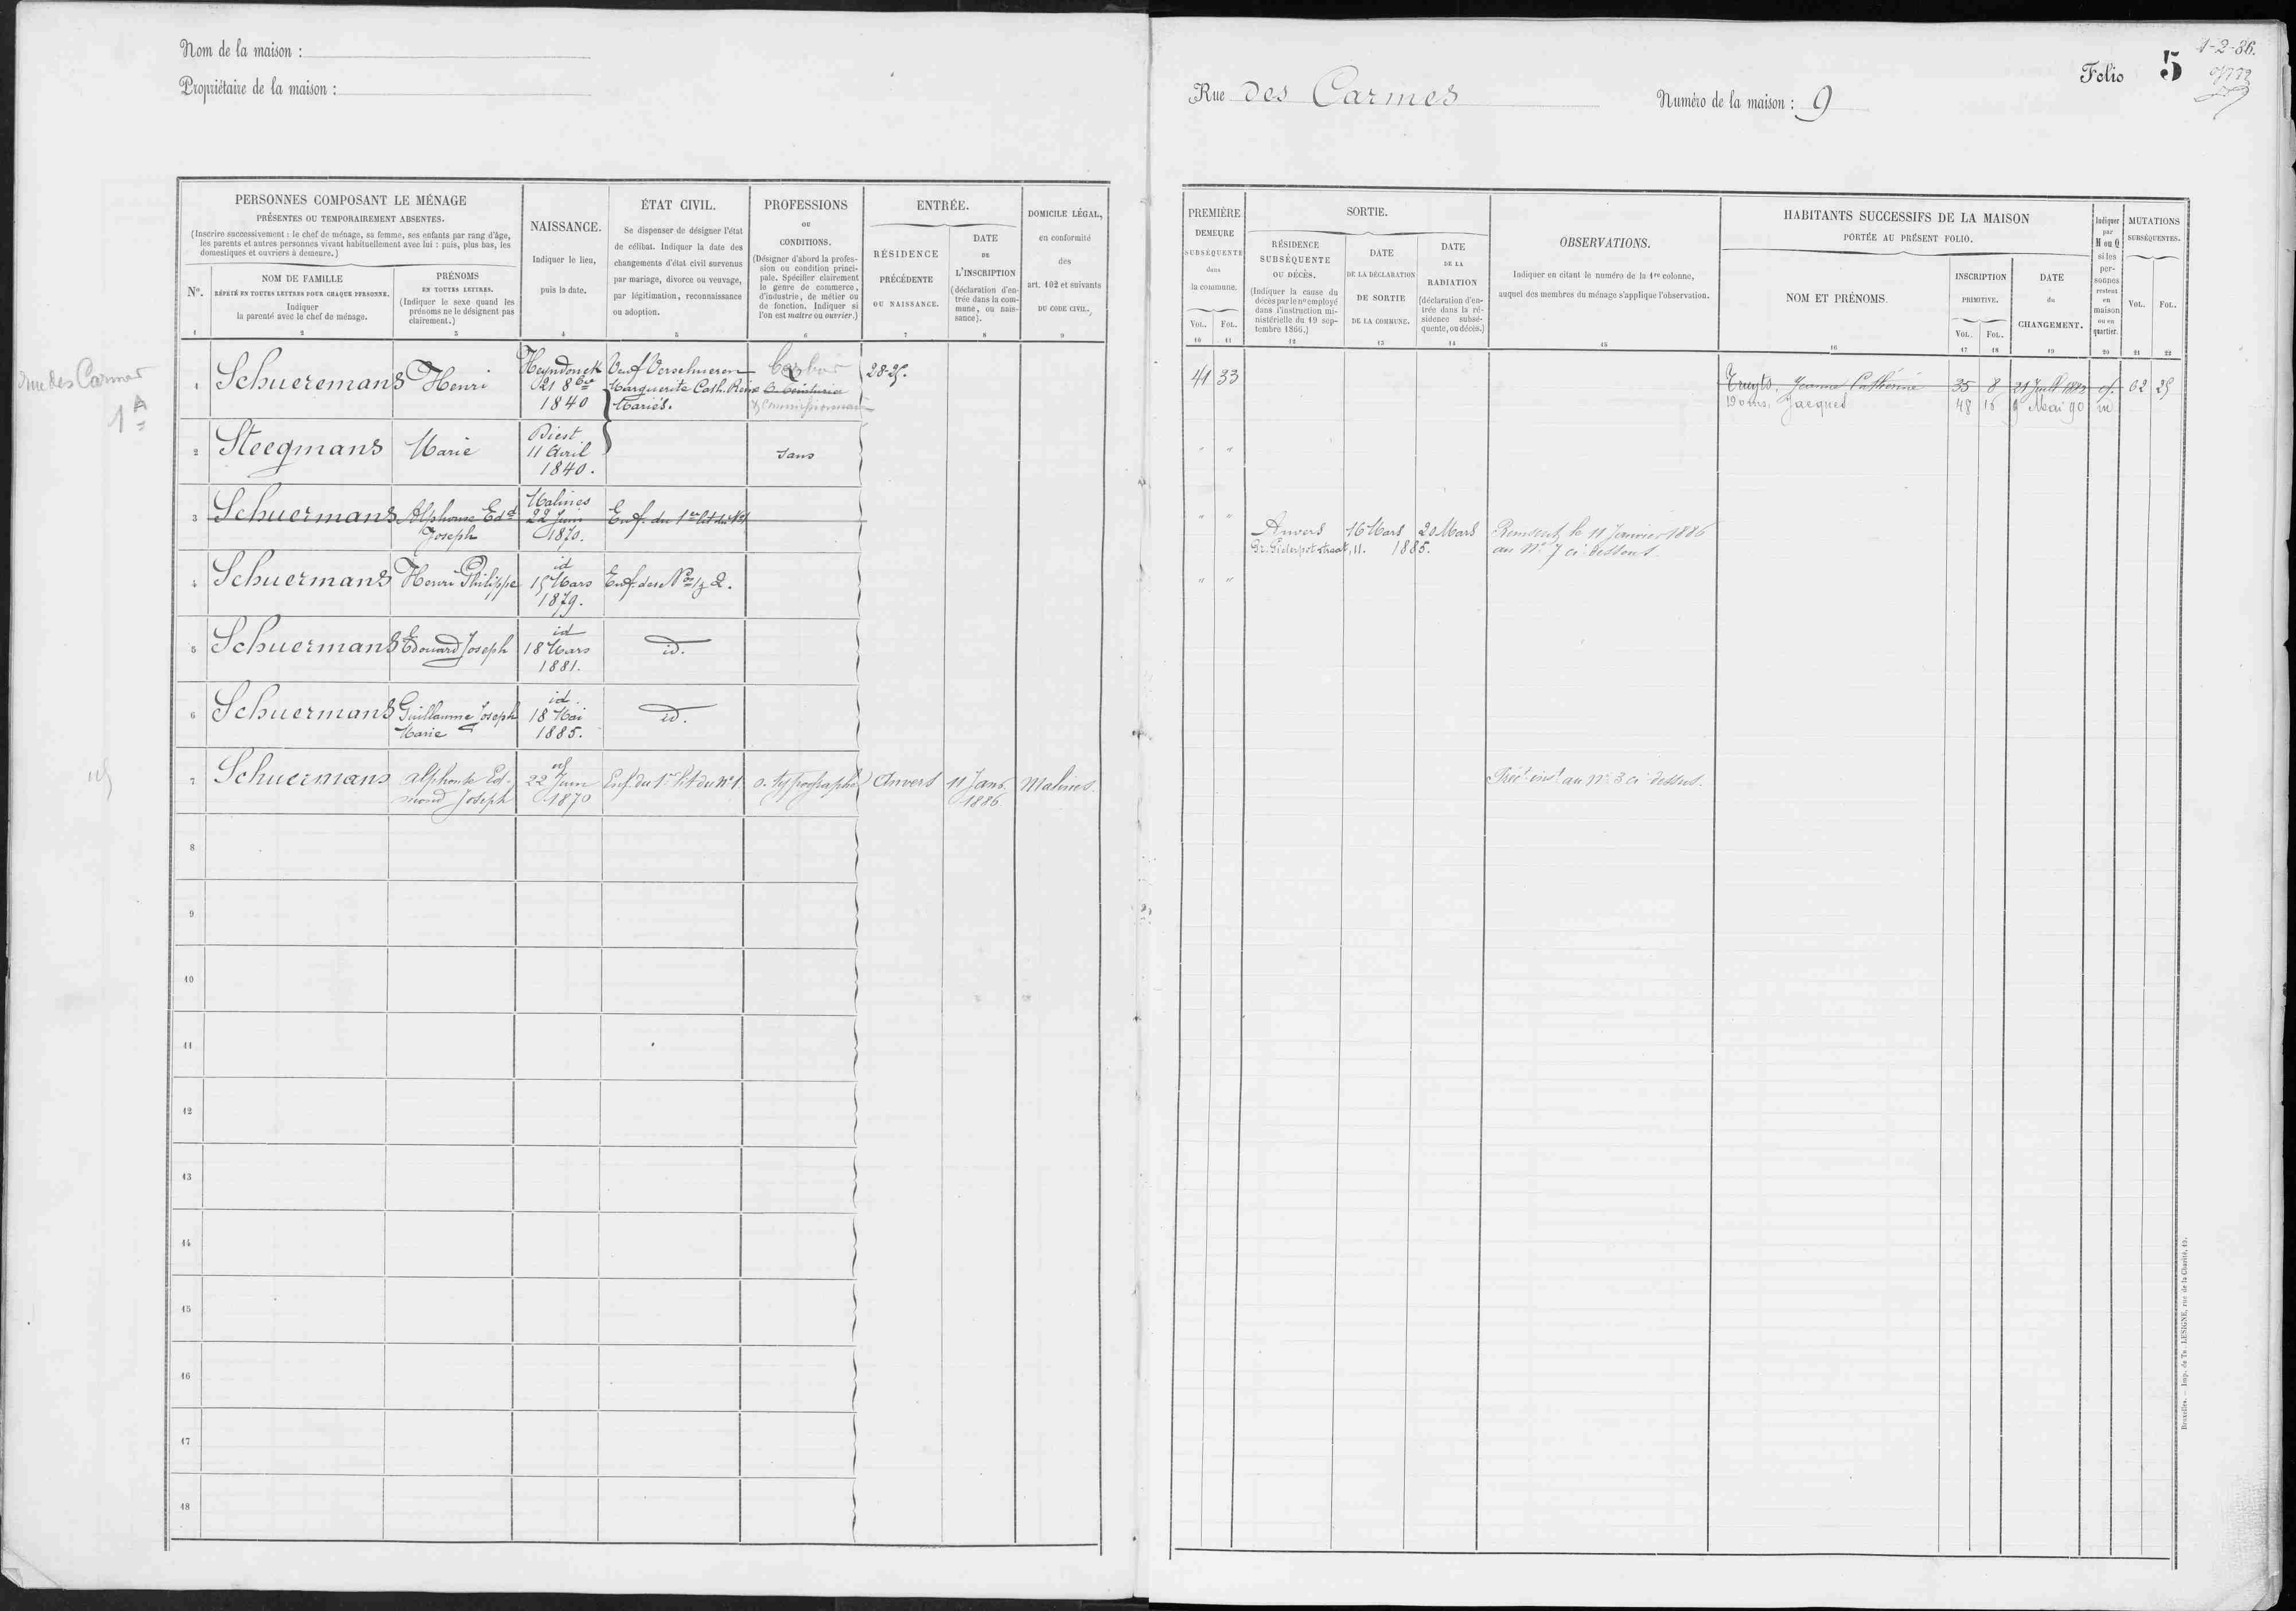 Nom de la maison :
Propriétaire de la maison :
PERSONNES COMPOSANT LE MÉNAGE
PRÉSENTES OU TEMPORAIREMENT ABSENTES.
(Inscrire successivement : le chef de ménage, sa femme, ses enfants par rang d'âge,
les parents et autres personnes vivant habituellement avec lui : puis, plus bas, les
domestiques et ouvriers à demeure.)
Nº.
NOM DE FAMILLE
RÉPÉTÉ EN TOUTES LETTRES POUR CHAQUE PERSONNE.
Indiquer
la parenté avec le chef de ménage.
PRÉNOMS
EN TOUTES LETTRES.
(Indiquer le sexe quand les
prénoms ne le désignent pas
clairement.)
NAISSANCE.
Indiquer le lieu,
puis la date.
ÉTAT CIVIL.
Se dispenser de désigner l'état
de célibat. Indiquer la date des
changements d'état civil survenus
par mariage, divorce ou veuvage,
par légitimation, reconnaissance
ou adoption.
PROFESSIONS
OU
CONDITIONS.
(Désigner d'abord la profes-
sion ou condition princi-
pale. Spécifier clairement
le genre de commerce,
d'industrie, de métier ou
de fonction. Indiquer si
l'on est maître ou ouvrier.)
ENTRÉE.
RÉSIDENCE
PRÉCÉDENTE
OU NAISSANCE.
DATE
DE
L'INSCRIPTION
(déclaration d'en-
trée dans la com-
mune, ou nais-
sance).
DOMICILE LÉGAL,
en conformité
des
art. 102 et suivants
DU CODE CIVIL.
1 2 3 4 5 6 7 8 9
rue des Carmes
1A
1 Schueremans Henri
Heyndonck
21 8bre
1840
Veuf Verschueren
Marguerite Cath. Reine
Mariés.
28-25.
2 Steegmans Marie
Diest
11 Avril
1840.
sans
3 Schuermans Alphonse Edd
Joseph
Malines
22 Juin
1870.
Enf. du 1er lit du Nº1
4 Schuermans Henri Philippe
id
15 Mars
1879.
Enf. des Nos 1 & 2.
5 Schuermans Edouard Joseph
id
18 Mars
1881.
id.
6 Schuermans Guillaume Joseph
Marie
id.
18 Mai
1885.
id.
7 Schuermans alphonse Ed-
mond Joseph
id
22 Juin
1870
Enf. du 1er lit du nº 1.
o. typographe
Anvers
11 Janv.
1886.
Malines.
8
9
10
11
12
13
14
15
16
17
18
Rue des Carmes
Numéro de la maison : 9
Folio 5
1-2-86.
PREMIÈRE
DEMEURE
SUBSÉQUENTE
dans
la commune.
VOL. FOL.
SORTIE.
RÉSIDENCE
SUBSÉQUENTE
OU DÉCÈS.
(Indiquer la cause du
décès par le nº employé
dans l'instruction mi-
nistérielle du 19 sep-
tembre 1866.)
DATE
DE LA DÉCLARATION
DE SORTIE
DE LA COMMUNE.
DATE
DE LA
RADIATION
(déclaration d'en-
trée dans la ré-
sidence subsé-
quente, ou décès.)
OBSERVATIONS.
Indiquer en citant le numéro de la 1re colonne,
auquel des membres du ménage s'applique l'observation.
HABITANTS SUCCESSIFS DE LA MAISON
PORTÉE AU PRÉSENT FOLIO.
NOM ET PRÉNOMS.
INSCRIPTION
PRIMITIVE.
VOL. FOL.
DATE
du
CHANGEMENT.
Indiquer
par
M ou Q
si les
per-
sonnes
restent
en
maison
ou en
quartier.
MUTATIONS
SUBSÉQUENTES.
VOL. FOL.
10 11 12 13 14 15 16 17 18 19 20 21 22
41 33
Jeanne Catherine 35 8 62 25
Jacques 48 Mai 90 m
" "
" "
Anvers 16 Mars 20 Mars
11. 1885.
le 11 Janvier 1886
au Nº 7 ci-dessous.
" "
au nº 3 ci-dessus.
Bruxelles. — Imp. de Th. LESIGNE, rue de la Charité, 12.